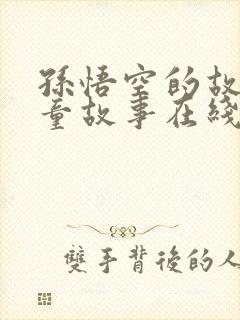 孫悟空的故
童故事在綫
雙手背後的人